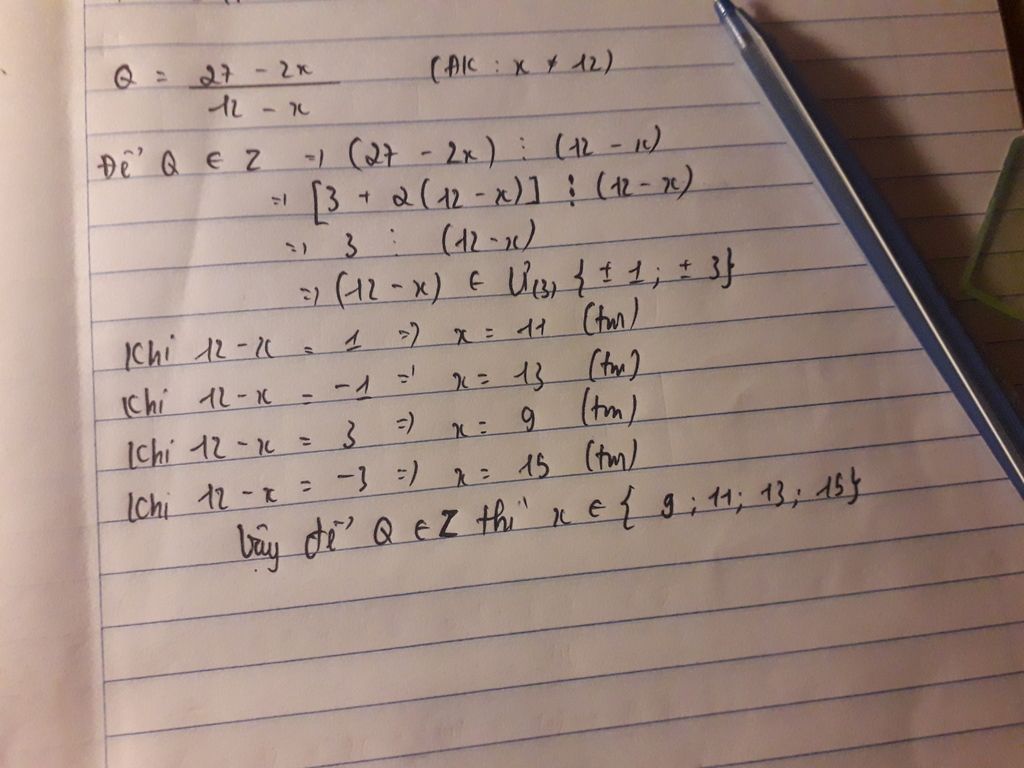 Q = 27 - 2x / 12 - x (ĐK : x ≠ 12)
Để Q ∈ Z => (27 - 2x) ⋮ (12 - x)
=> [3 + 2(12 - x)] ⋮ (12 - x)
=> 3 ⋮ (12 - x)
=> (12 - x) ∈ Ư(3) { ± 1 ; ± 3}
Khi 12 - x = 1 => x = 11 (tm)
Khi 12 - x = -1 => x = 13 (tm)
Khi 12 - x = 3 => x = 9 (tm)
Khi 12 - x = -3 => x = 15 (tm)
Vậy để Q ∈ Z thì x ∈ { 9 ; 11 ; 13 ; 15}